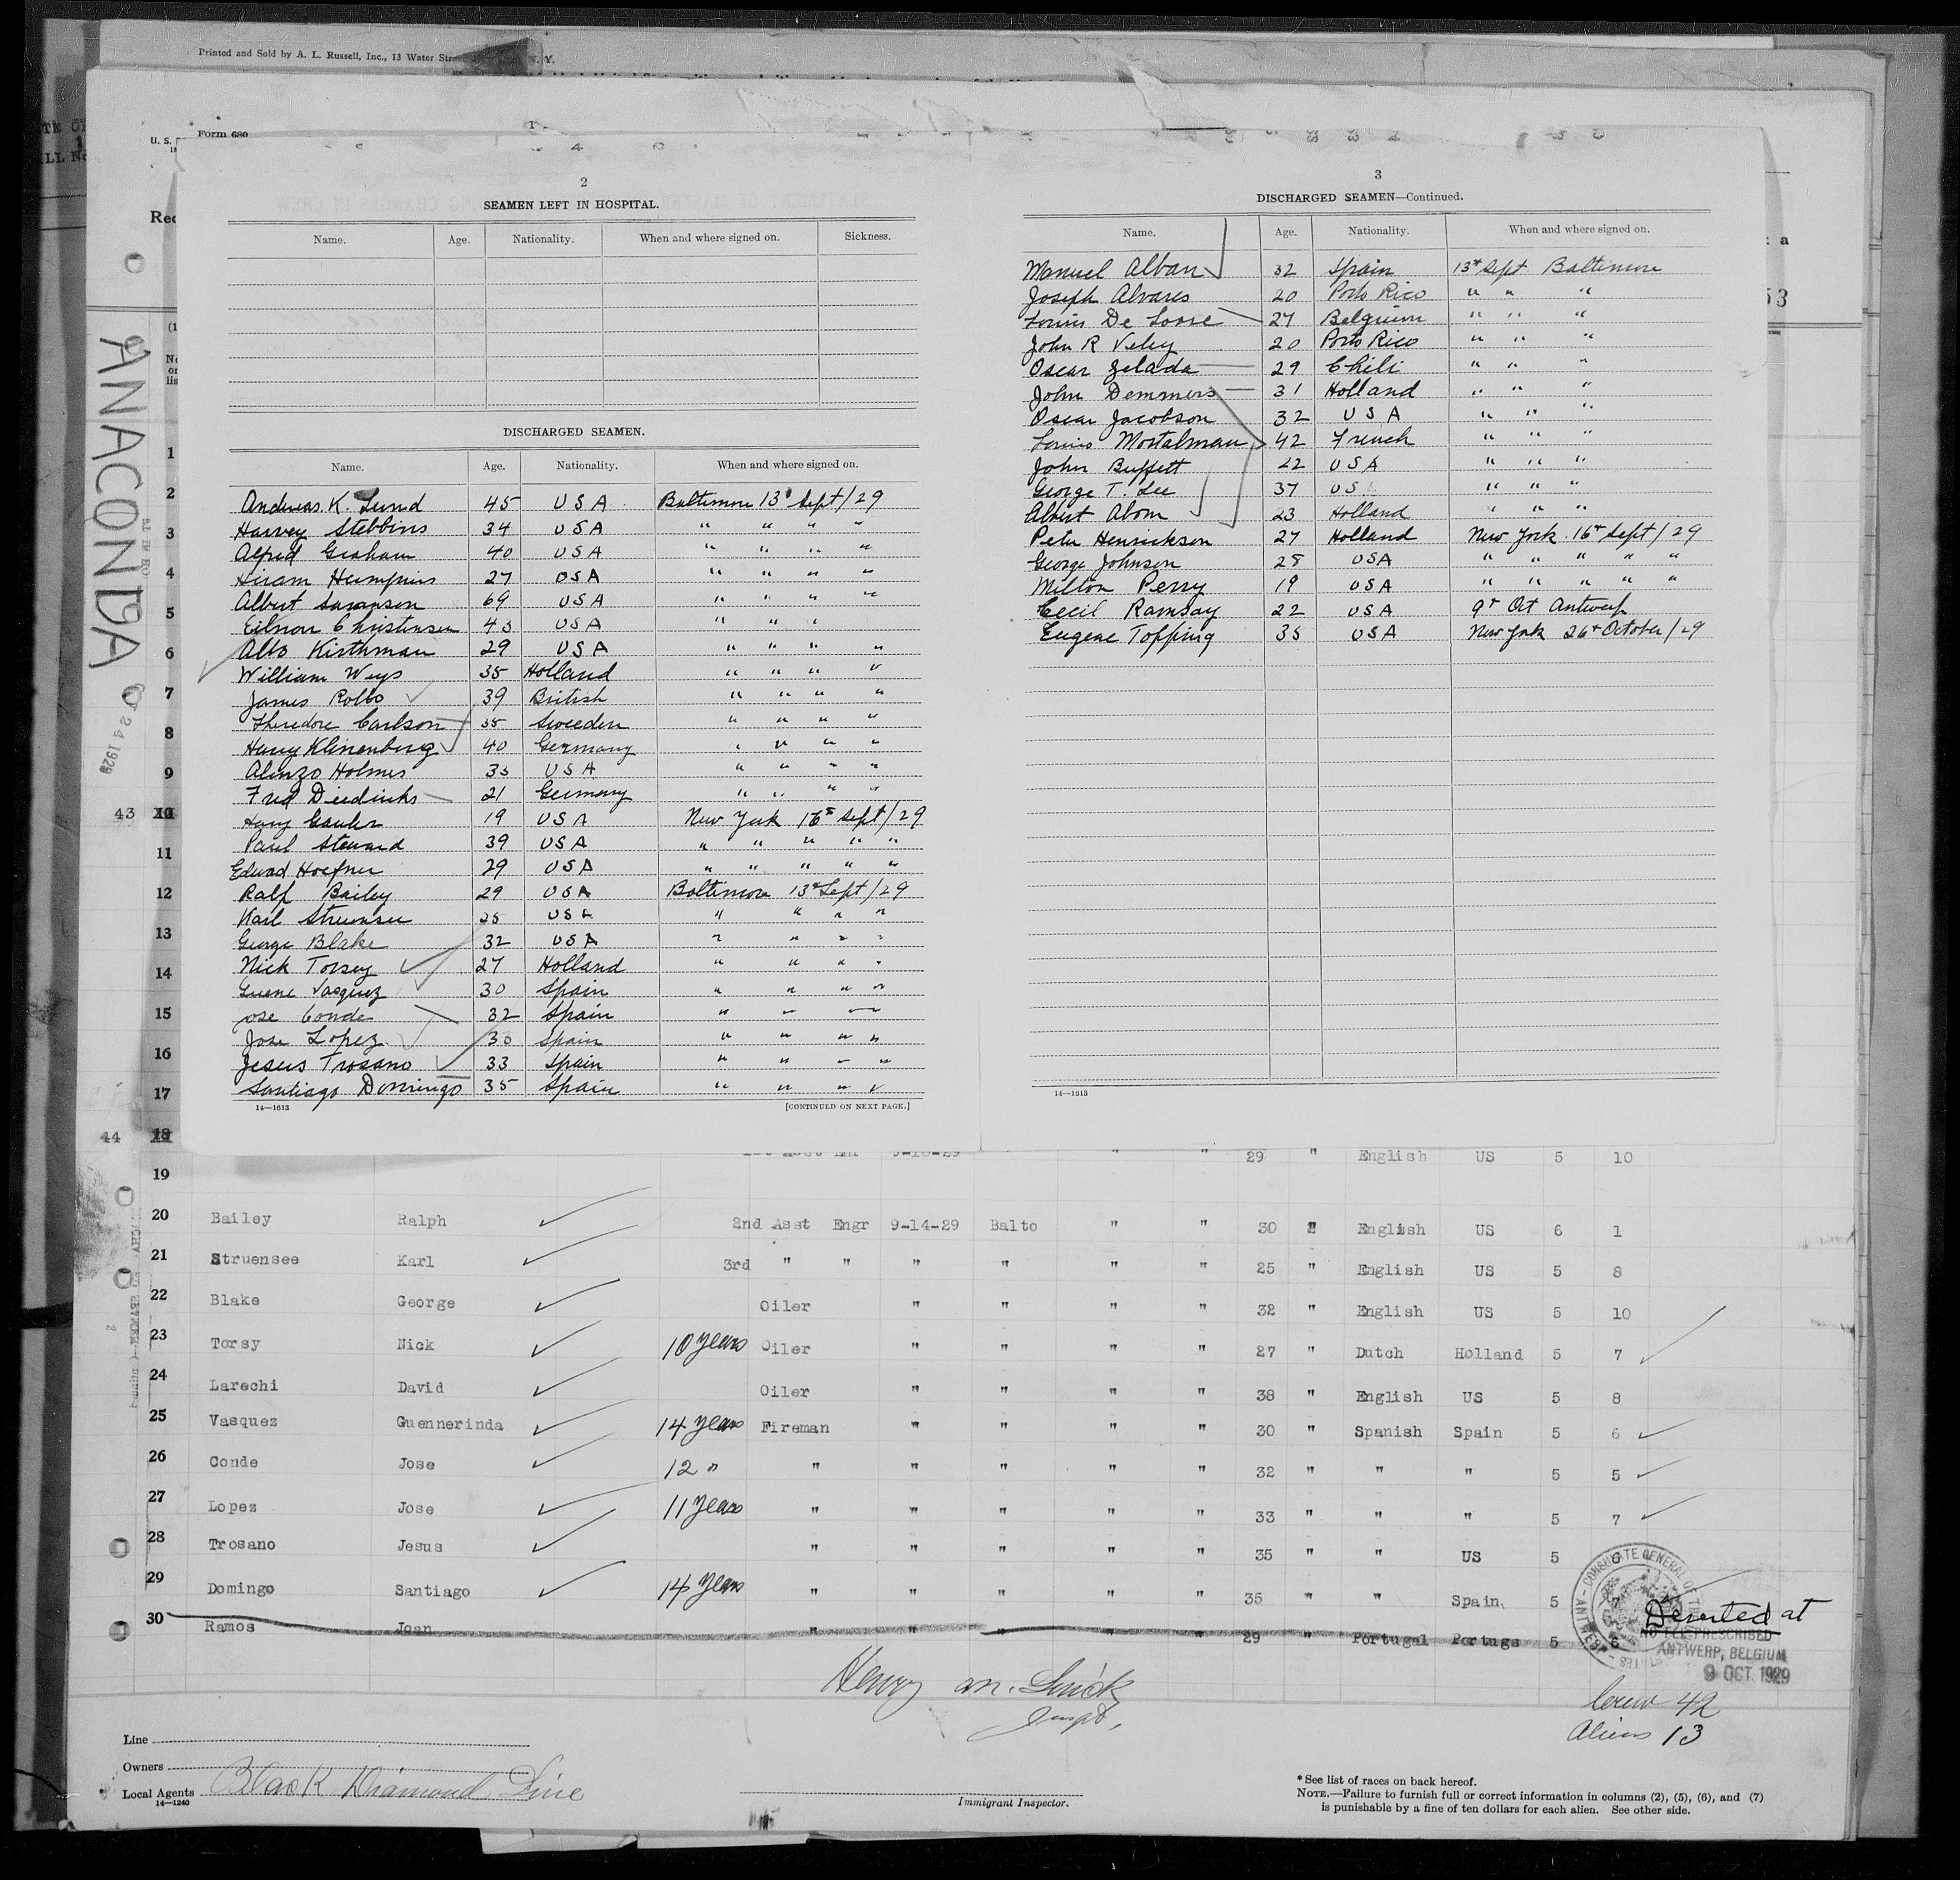 Printed and Sold by A. L. Russell, Inc., 13 Water N. Y.
Form 680
U. S.
2
SEAMEN LEFT IN HOSPITAL.
Name. Age. Nationality. When and where signed on. Sickness.
DISCHARGED SEAMEN.
Name. Age. Nationality. When and where signed on.
Andreas. K. Lund 45 USA Baltimore 13 Sept/29
Harvey Stebbins 34 USA " " " "
Alfred Graham 40 USA " " " "
Hiram 27 USA " " " "
Albert Swanson 69 USA " " " "
Christensen 43 USA " " "
Alto Kirthman 29 USA " " " "
William Weys 35 Holland " " " "
James Robbo 39 British " " " "
Theredore Carlson 35 Sweeden " " " "
Harry Klinenberg 40 Germany " " " "
Alonzo Holmes 33 USA " " " "
Fred Diedricks 21 Germany " " " "
19 USA New York 16th Sept/29
Paul Steward 39 USA " " " " "
Edward Hoefner 29 USA " " " " "
Ralf Bailey 29 USA Baltimore 13th Sept/29
Karl Struensee 25 USA " " " "
George Blake 32 USA " " " "
Nick Torsey 27 Holland " " " "
Vasquez 30 Spain " " " "
Jose Conde 32 Spain " " "
Jose Lopez 33 Spain " " " "
Jesus Trosano 33 Spain " " " "
Santiago Domingo 35 Spain " " " "
14—1613 [CONTINUED ON NEXT PAGE.]
3
DISCHARGED SEAMEN—Continued.
Name. Age. Nationality. When and where signed on.
Manuel Alban 32 Spain 13th Sept Baltimore
Joseph Alvares 20 Porto Rico " " "
Louis De Loose 27 Belgium " " "
John R Veley 20 Porto Rico " " "
Oscar Zelada 29 Chili " " "
John Demmers 31 Holland " " "
Oscar Jacobson 32 USA " " "
Louis Mortalman 42 French " " "
John Buffett 22 USA " " "
George T. Lee 37 US " " "
Albert Abom 23 Holland " " "
Peter Henrickson 27 Holland New York 16th Sept/29
George Johnson 28 USA " " " " "
Milton Perry 19 USA " " " " "
Cecil Ramsay 22 USA 9th Oct Antwerp
Eugene Topping 35 USA New York 26th October/29
14—1613
ANACONDA
1
2
3
4
5
6
7
8
9
43
11
12
13
14
15
16
17
44
29 " English US 5 10
19
20 Bailey Ralph 2nd Asst Engr 9-14-29 Balto " " 30 " English US 6 1
21 Struensee Karl 3rd " " " " " " 25 " English US 5 8
22 Blake George Oiler " " " " 32 " English US 5 10
23 Torsy Nick 10 years Oiler " " " " 27 " Dutch Holland 5 7
24 Larechi David Oiler " " " " 38 " English US 5 8
25 Vasquez Guennerinda 14 years Fireman " " " " 30 " Spanish Spain 5 6
26 Conde Jose 12 " " " " " " 32 " " " 5 5
27 Lopez Jose 11 years " " " " " 33 " " " 5 7
28 Trosano Jesus " " " " " 35 " " US 5 6
29 Domingo Santiago 14 years " " " " " 35 " " Spain 5
30 Ramos Joan " " " " 29 " Portugal Portugs 5 6
Deserted at
NO FEE PRESCRIBED
ANTWERP, BELGIUM
9 OCT. 1929
Crew 42
Aliens 13
Line
Owners
Local Agents Black Diamond Line
14—1240
Immigrant Inspector.
*See list of races on back hereof.
NOTE.—Failure to furnish full or correct information in columns (2), (5), (6), and (7)
is punishable by a fine of ten dollars for each alien. See other side.